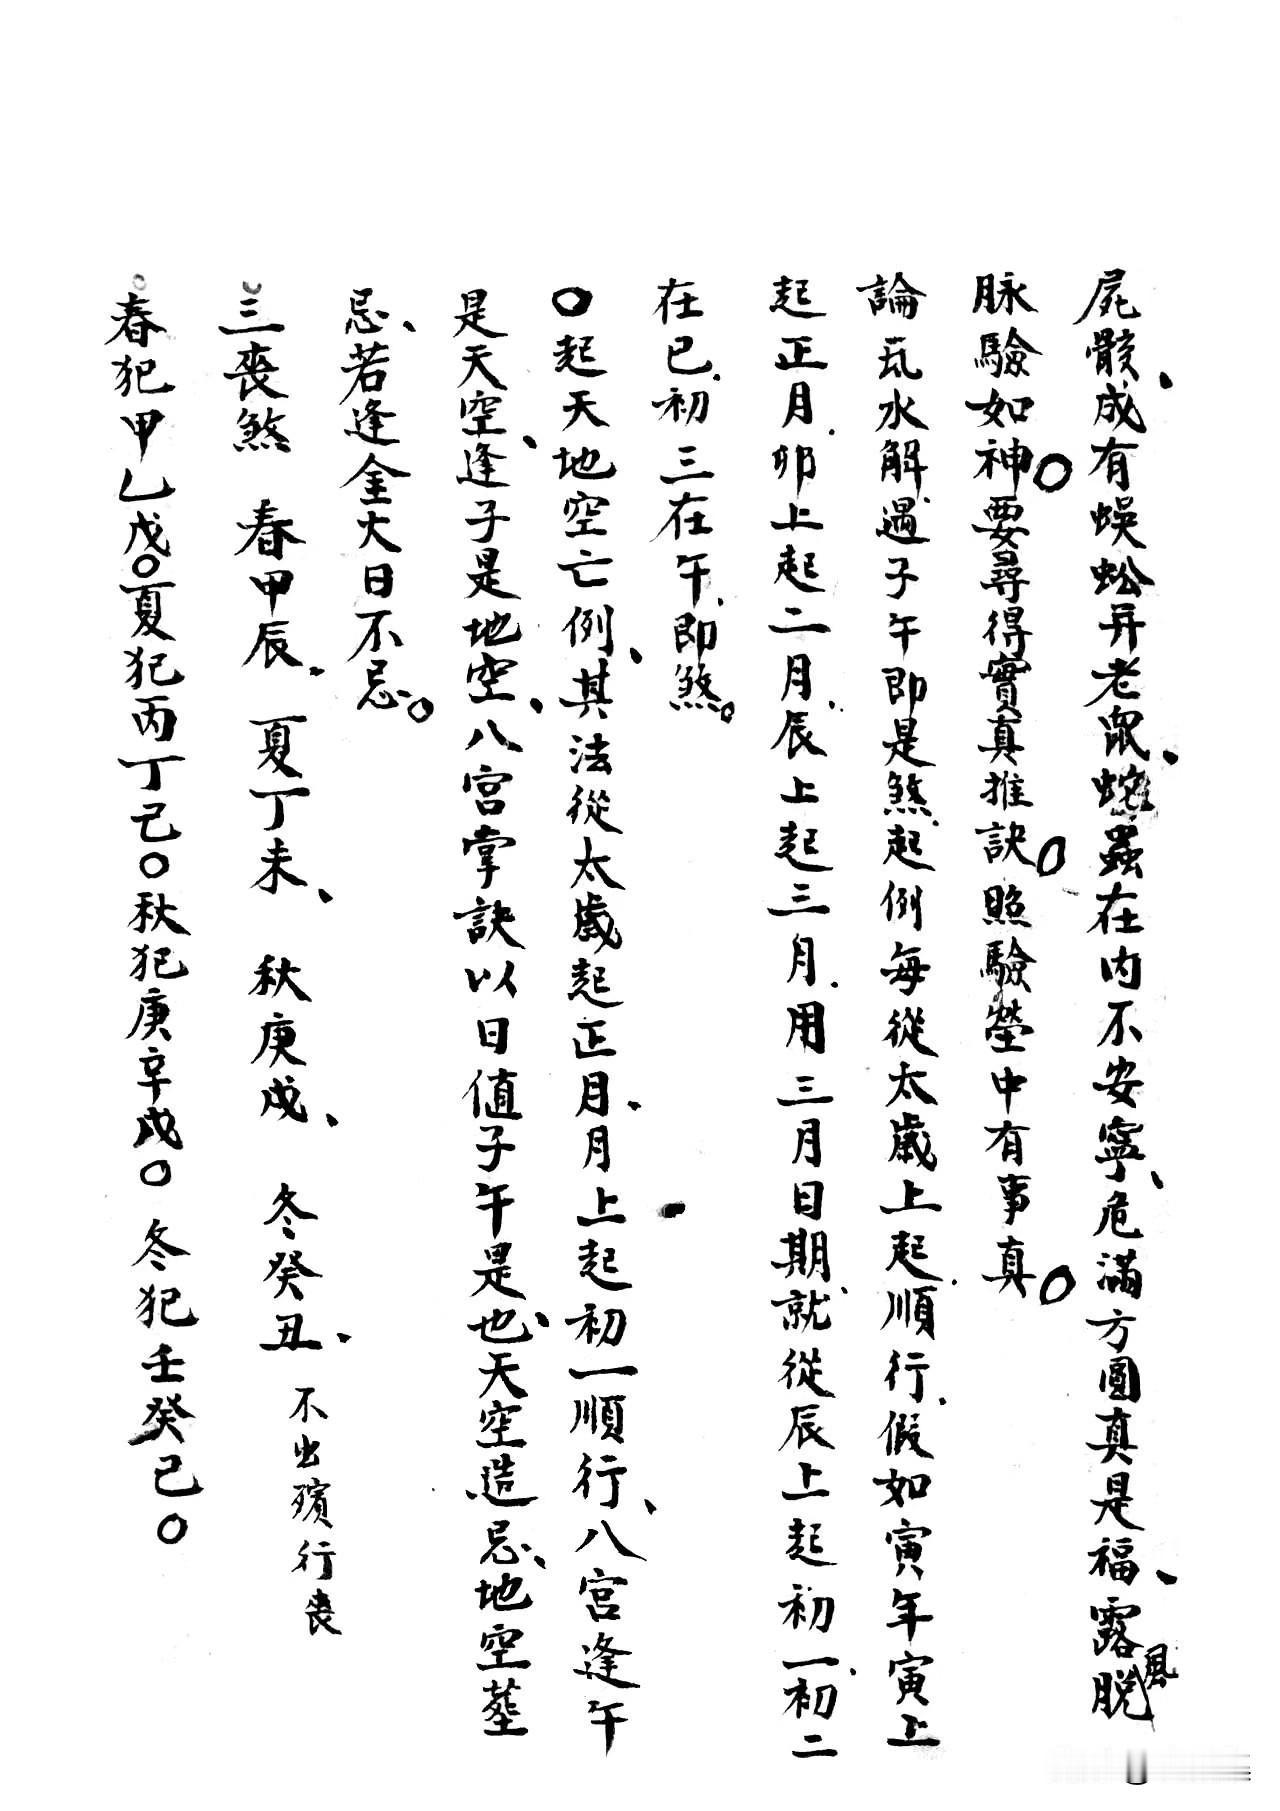 屍骸成有蜈蚣并老鼠、蛇蟲在内不安寧、危滿方圓真是福、露風脫
脉驗如神○要尋得實真推訣○照驗塋中有事真○
論瓦水解過子午即是煞起例每從太歲上起順行假如寅年寅上
起正月卯上起二月辰上起三月用三月日期就從辰上起初一初二
在巳初三在午即煞。
○起天地空亡例、其法從太歲起正月、月上起初一順行、八宮逢午
是天空、逢子是地空、八宮掌訣以日值子午是也、天空造忌、地空塟
忌、若逢金火日不忌。
三喪煞 春甲辰、夏丁未、秋庚戌、冬癸丑、不出殯行喪
春犯甲乙戊○夏犯丙丁己○秋犯庚辛戊○冬犯壬癸己○